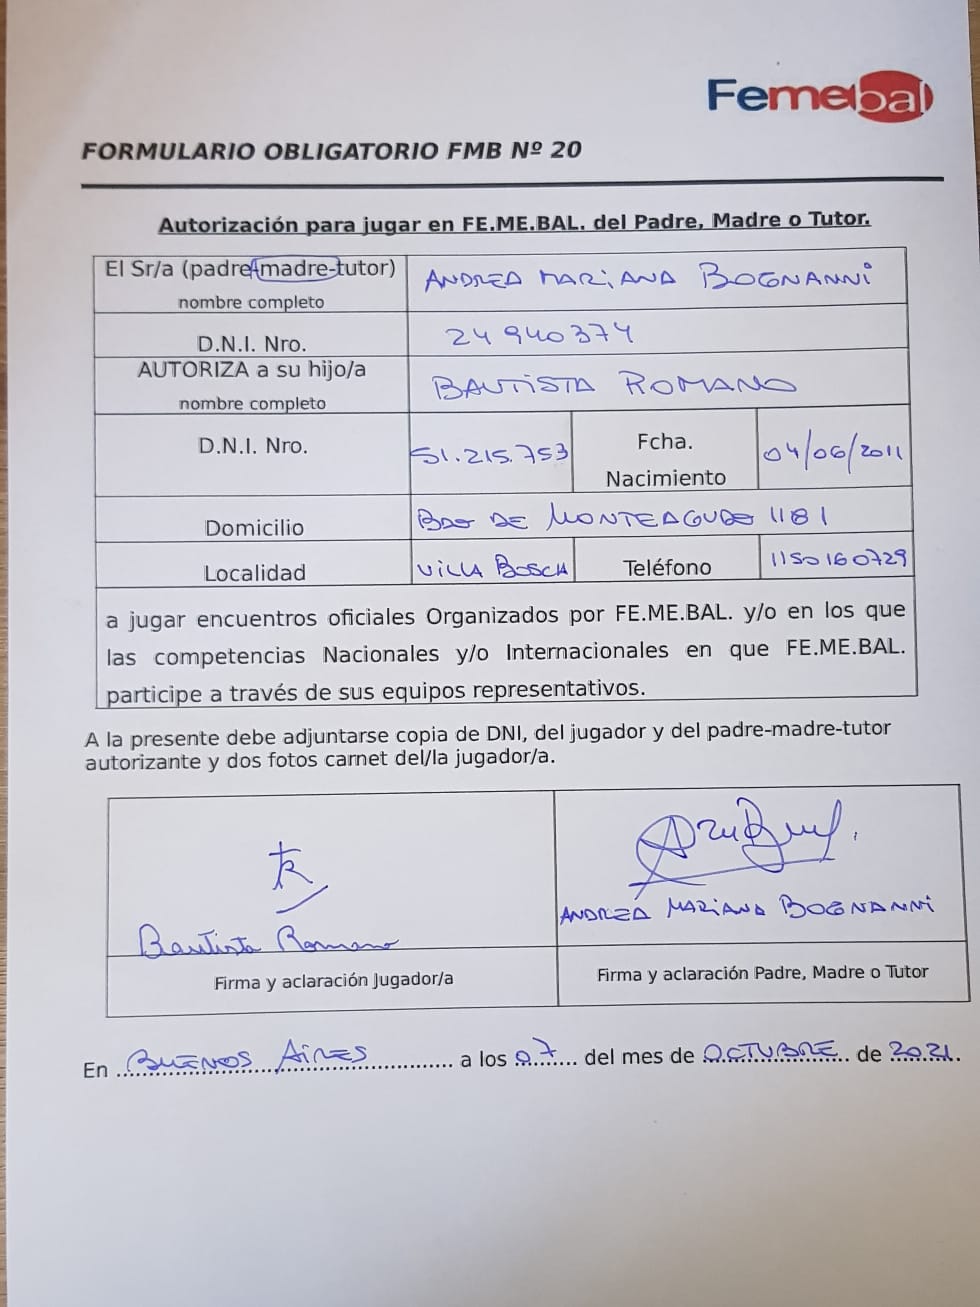 Femebal
FORMULARIO OBLIGATORIO FMB Nº 20
Autorización para jugar en FE.ME.BAL. del Padre, Madre o Tutor.
El Sr/a (padre-madre-tutor) ANDREA MARIANA BOGNANNI
nombre completo
D.N.I. Nro. 24940374
AUTORIZA a su hijo/a BAUTISTA ROMANO
nombre completo
D.N.I. Nro. 51.215.753 Fcha. 04/06/2011
Nacimiento
Domicilio BDO DE MONTEAGUDO 1181
Localidad VILLA BOSCH Teléfono 1150160729
a jugar encuentros oficiales Organizados por FE.ME.BAL. y/o en los que
las competencias Nacionales y/o Internacionales en que FE.ME.BAL.
participe a través de sus equipos representativos.
A la presente debe adjuntarse copia de DNI, del jugador y del padre-madre-tutor
autorizante y dos fotos carnet del/la jugador/a.
Bautista Romano
ANDREA MARIANA BOGNANNI
Firma y aclaración Jugador/a
Firma y aclaración Padre, Madre o Tutor
En BUENOS AIRES a los 07 del mes de OCTUBRE de 2021.